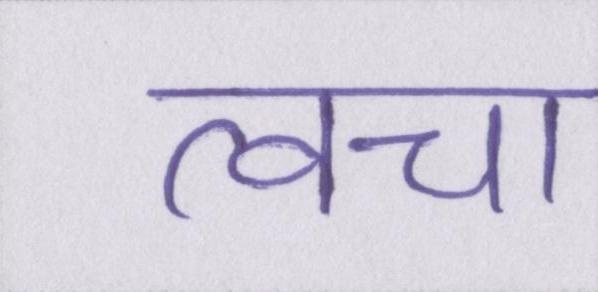 त्वचा